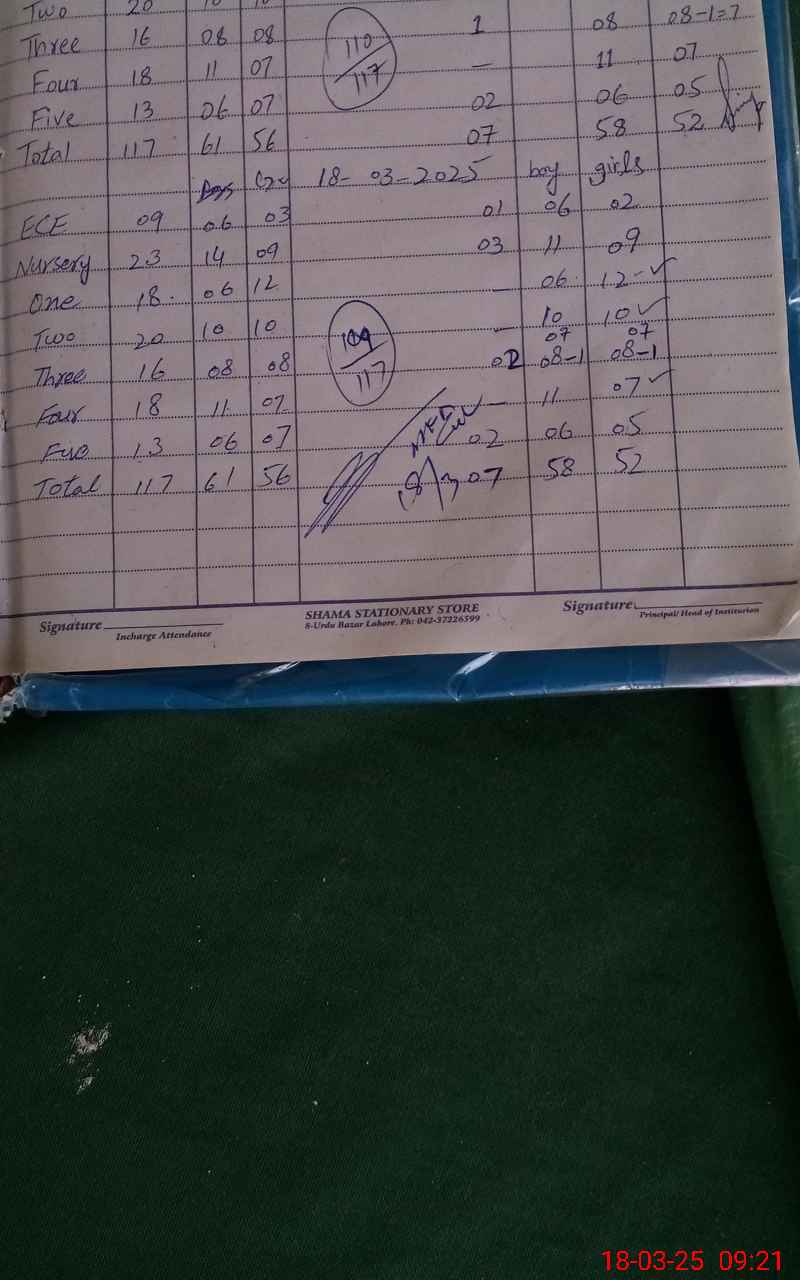 Two 20 10 10
Three 16 08 08 1 08 08-1=7
110/117
Four 18 11 07 — 11 07
Five 13 06 07 02 06 05
Total 117 61 56 07 58 52
Boys 18-03-2025 boy girls
ECE 09 06 03 01 06 02
Nursery 23 14 09 03 11 09
One 18 06 12 — 06 12 ✓
Two 20 10 10 — 10 10 ✓
109/117
07 07
Three 16 08 08 02 08-1 08-1
Four 18 11 07 — 11 07 ✓
Five 13 06 07 02 06 05
Total 117 61 56 07 58 52
18/3
Signature
Incharge Attendance
SHAMA STATIONARY STORE
8-Urdu Bazar Lahore. Ph: 042-37226599
Signature
Principal/Head of Institution
18-03-25 09:21